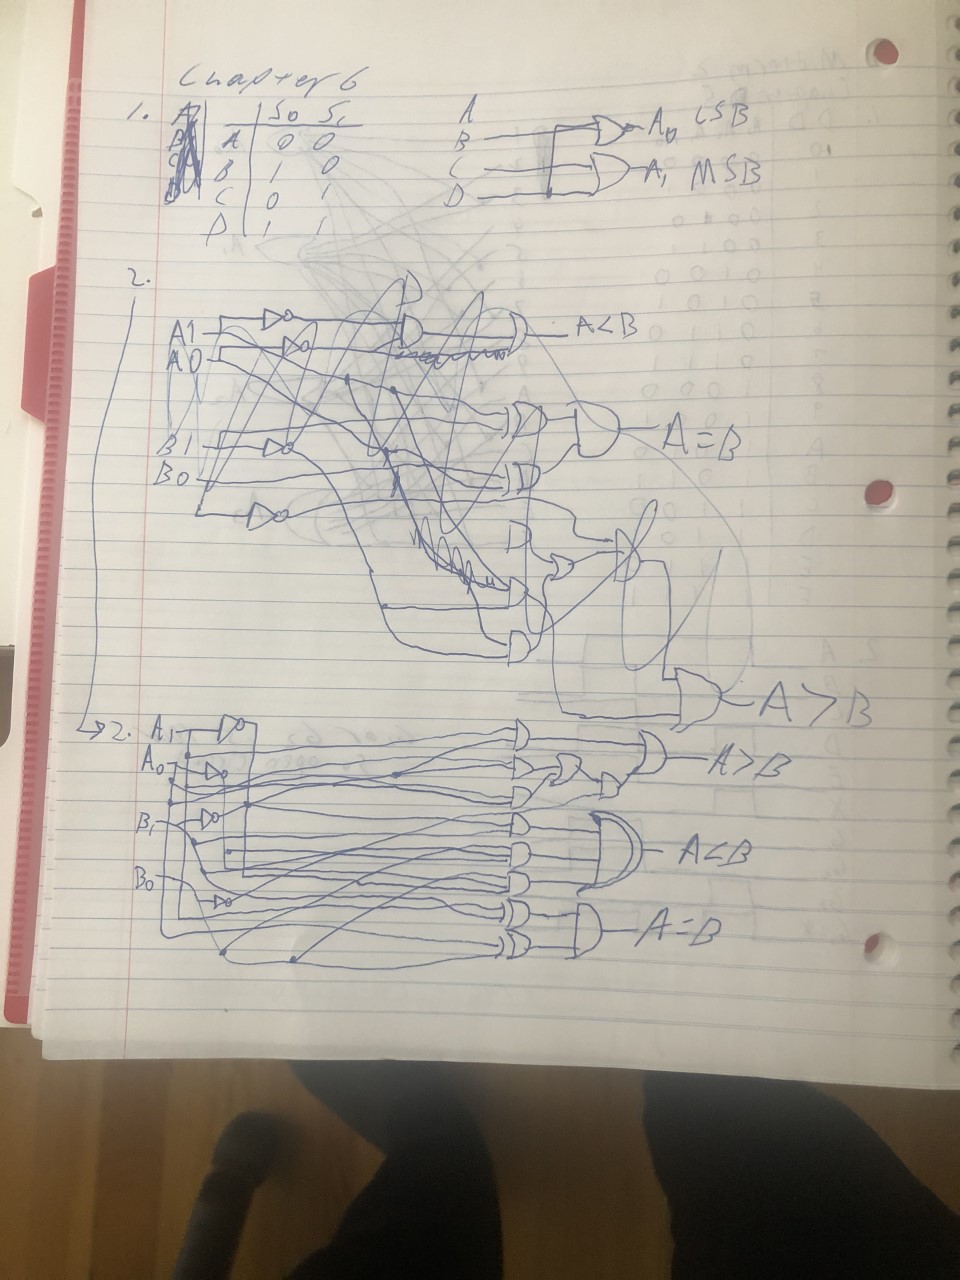 Chapter 6
1. S0 S1
A 0 0
B 1 0
C 0 1
D 1 1
A
B
C
D
A0 LSB
A1 MSB
2.
A1
A0
B1
B0
A<B
A=B
A>B
2. A1
A0
B1
B0
A>B
A<B
A=B